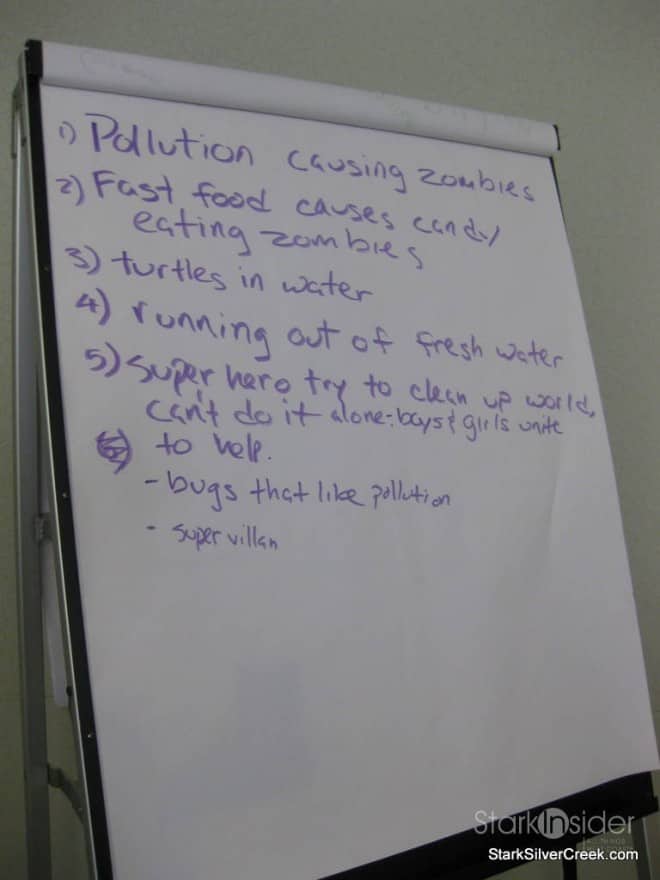 1) Pollution causing zombies
2) Fast food causes candy
eating zombies
3) turtles in water
4) running out of fresh water
5) super hero try to clean up world,
can't do it alone: boys & girls unite
to help.
- bugs that like pollution
- super villan
StarkInsider
StarkSilverCreek.com